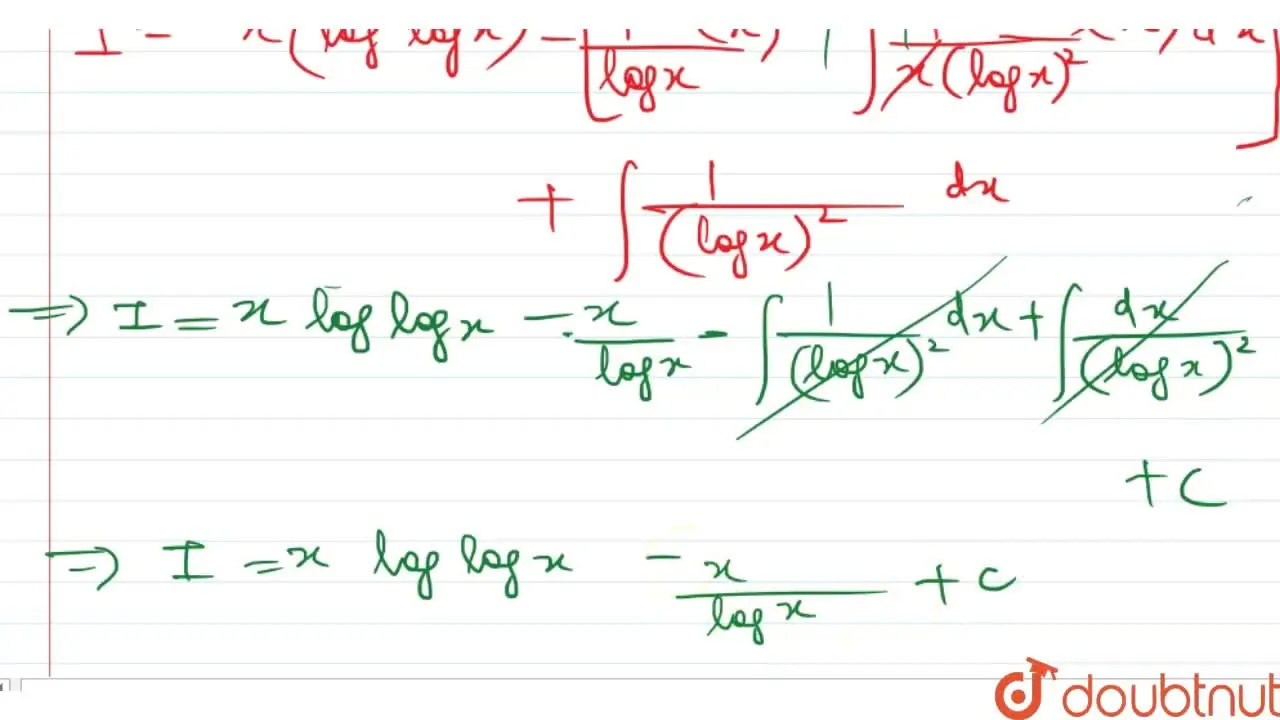 I = x(log logx) - [1/logx (x) + ∫ 1/x(logx)² x(x) dx]
+ ∫ 1/(logx)² dx
⇒ I = x log logx - x/logx - ∫ 1/(logx)² dx + ∫ dx/(logx)²
+ C
⇒ I = x log logx - x/logx + C
doubtnut